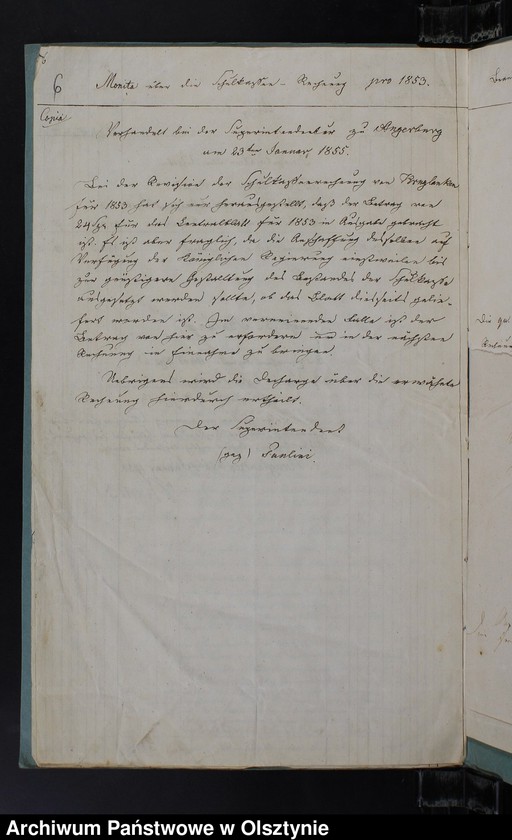 6
Monita über die Schulkassen-Rechnung pro 1853.
Copia
Verhandelt bei der Superintendentur zu Angerburg
am 23ten Januar 1855.
Bei der Revision der Schulkassenrechnung von
für 1853 hat sich nur herausgestellt, daß der Betrag von
24 Sgr für das Centralblatt für 1853 in Ausgabe gebracht
ist. Es ist aber fraglich, da die Anschaffung desselben auf
Verfügung der Königlichen Regierung einstweilen bis
zur günstigern Gestaltung des Bestandes der Schulkasse
ausgesetzt werden sollte, ob das Blatt diesseits gelie-
fert worden ist. Im verneinenden Falle ist der
Betrag von hier zu erfordern und in der nächsten
Rechnung in Einnahme zu bringen.
Uebrigens wird die Decharge über die erwähnte
Rechnung hierdurch ertheilt.
Der Superintendent
(gez) Paulini.
Die
Archiwum Państwowe w Olsztynie